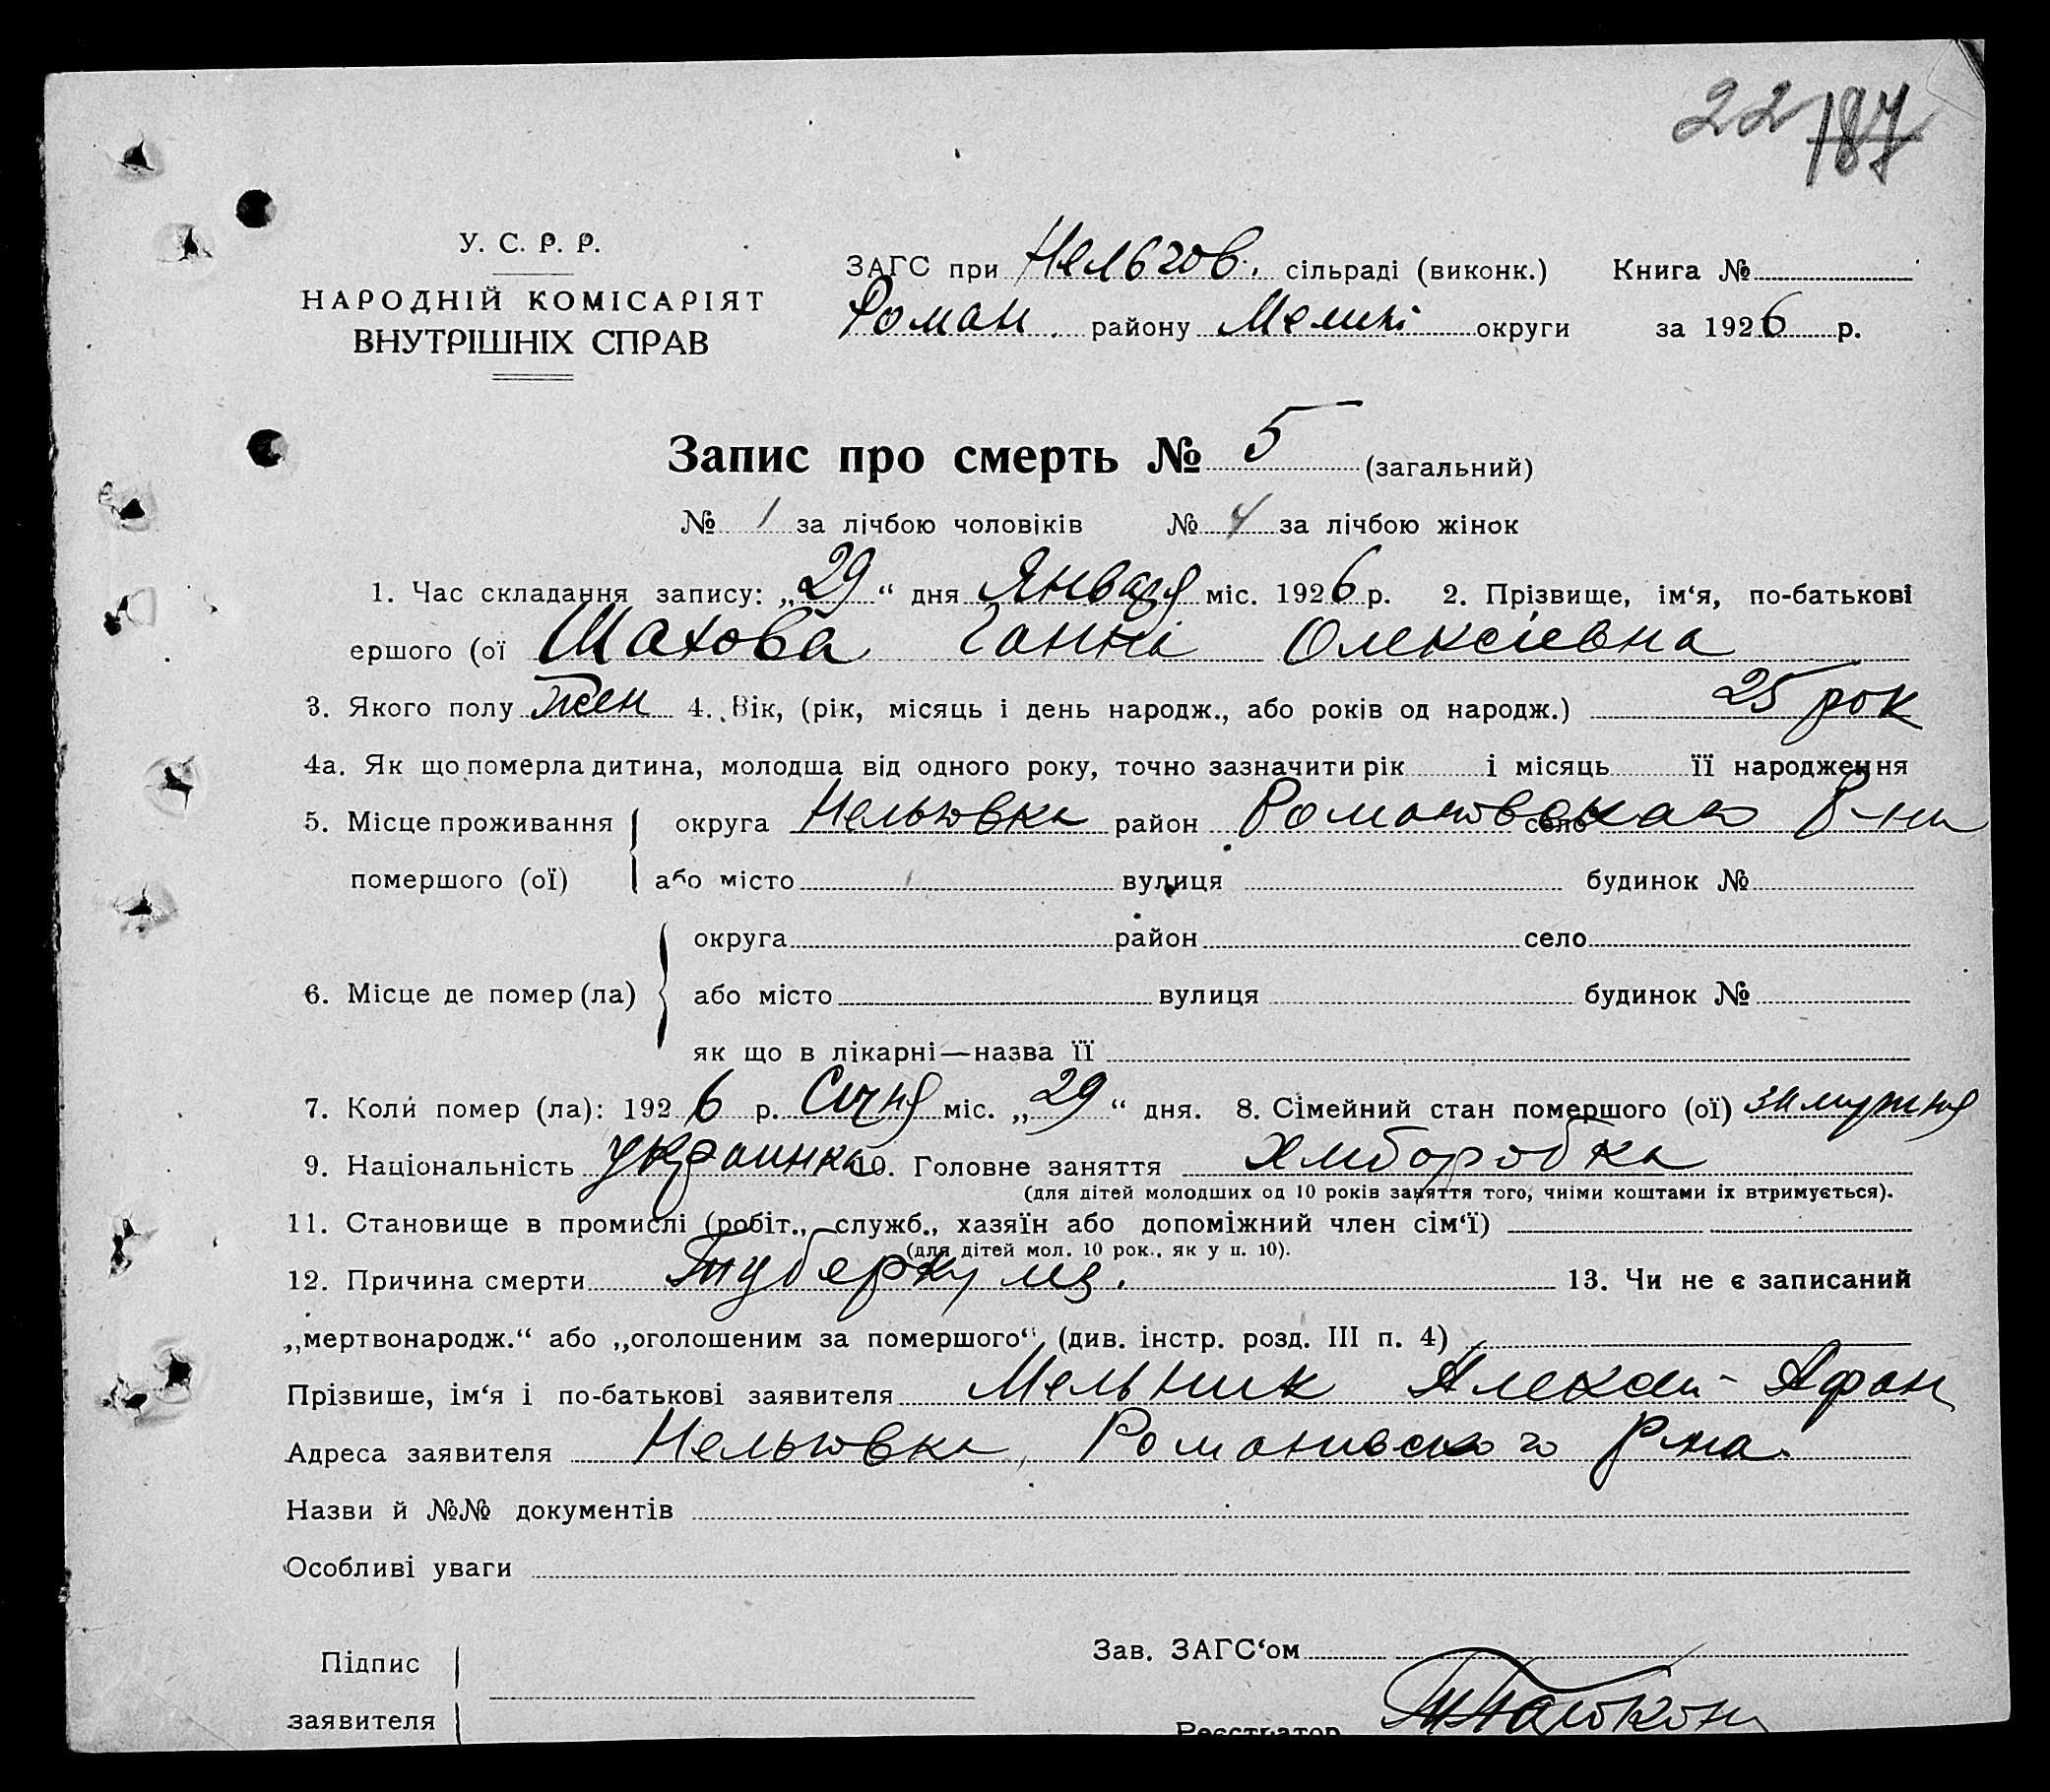 22 187
У. С. Р. Р.
НАРОДНІЙ КОМІСАРІЯТ
ВНУТРІШНІХ СПРАВ
ЗАГС при Нельгов. сільраді (виконк.) Книга №
Роман. району Меліт округи за 1926 р.
Запис про смерть № 5 (загальний)
№ 1 за лічбою чоловіків № 4 за лічбою жінок
1. Час складання запису: „29“ дня Января міс. 1926 р. 2. Прізвище, ім‘я, по-батькові
ершого (ої Шахова Ганна Олексіевна
3. Якого полу жен 4. Вік, (рік, місяць і день народж., або років од народж.) 25 рок
4а. Як що померла дитина, молодша від одного року, точно зазначити рік і місяць її народження
5. Місце проживання округа Нельговка район Романовскаго село Р-на
помершого (ої) або місто вулиця будинок №
округа район село
6. Місце де помер (ла) або місто вулиця будинок №
як що в лікарні—назва її
7. Коли помер (ла): 1926 р. Січня міс. „29“ дня. 8. Сімейний стан помершого (ої) замужня
9. Національність украинка 10. Головне заняття Хліборобка
(для дітей молодших од 10 років заняття того, чиїми коштами їх втримується).
11. Становище в промислі (робіт., служб., хазяїн або допоміжний член сім‘ї)
(для дітей мол. 10 рок., як у п. 10).
12. Причина смерти Туберкулез. 13. Чи не є записаний
„мертвонародж.“ або „оголошеним за помершого“ (див. інстр. розд. III п. 4)
Прізвише, ім‘я і по-батькові заявителя Мельник Алексей Афан
Адреса заявителя Нельговка, Романивского Р-на.
Назви й №№ документів
Особливі уваги
Підпис
заявителя
Зав. ЗАГС‘ом
Реєстратор